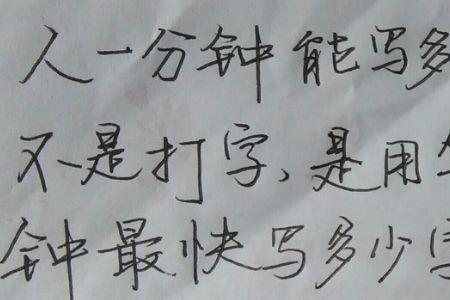 人一分钟能写多
不是打字、是用
钟最快写多少字